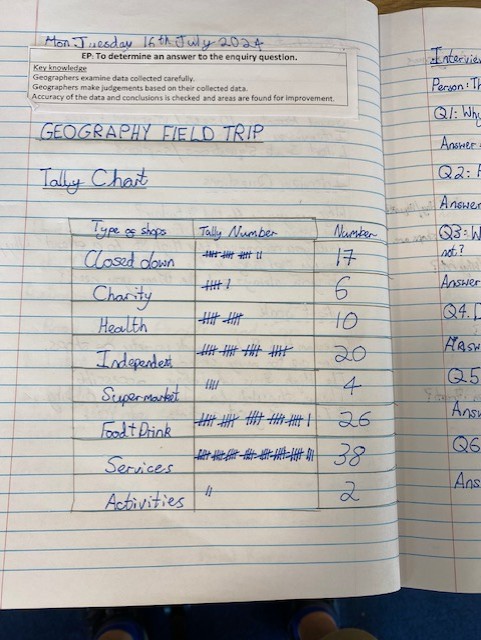 Mon Tuesday 16th July 2024
EP: To determine an answer to the enquiry question.
Key knowledge
Geographers examine data collected carefully.
Geographers make judgements based on their collected data.
Accuracy of the data and conclusions is checked and areas are found for improvement.
GEOGRAPHY FIELD TRIP
Tally Chart
Type of shops Tally Number Number
Closed down 17
Charity 6
Health 10
Independent 20
Supermarket 4
Food + Drink 26
Services 38
Activities 2
Interview
Person: Th
Q1: Why
Answer
Q2:
Answer
Q3: W
not?
Answer
Q4.
Answ
Q5
Answ
Q6
Ans